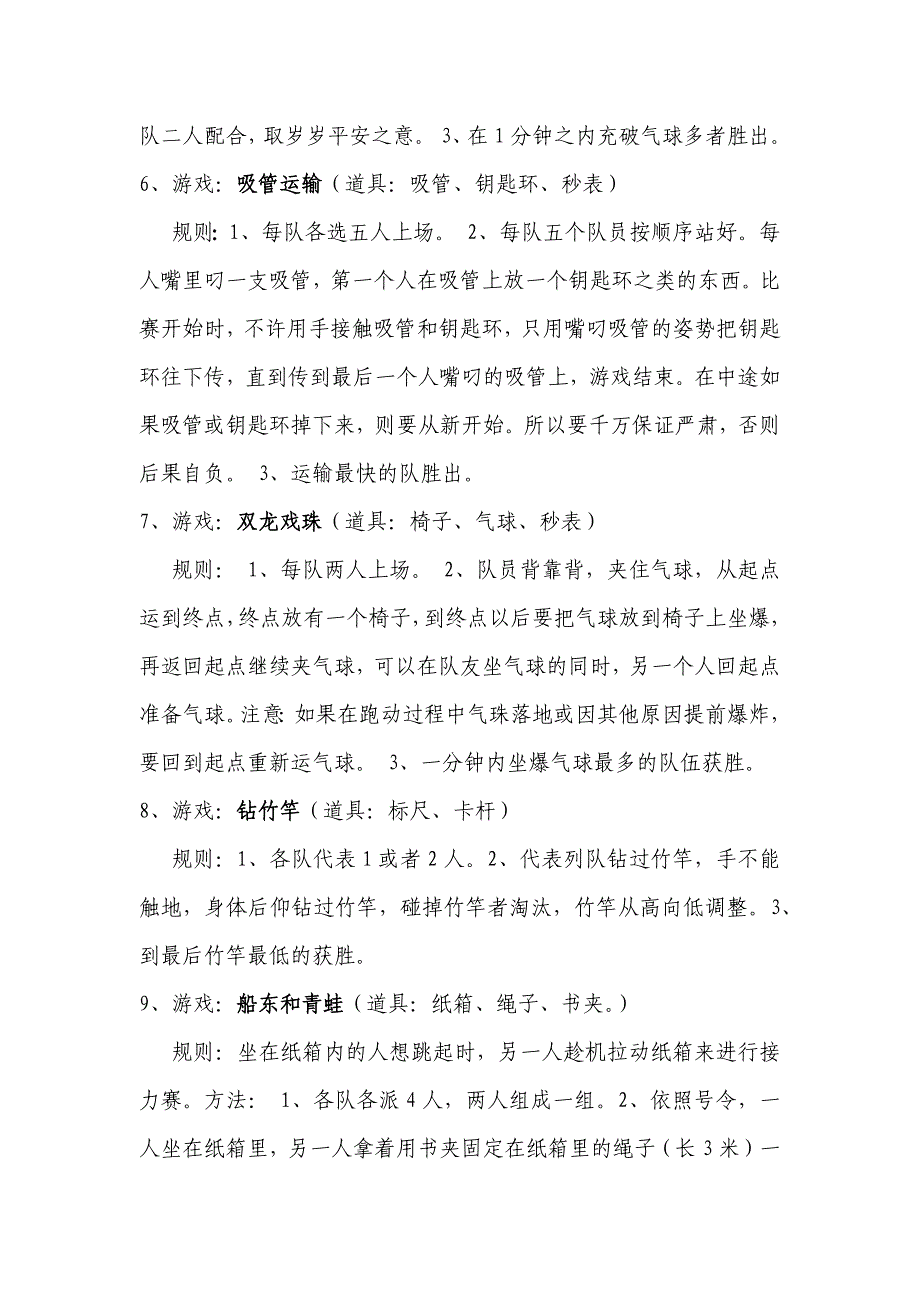 队二人配合，取岁岁平安之意。 3、在1分钟之内充破气球多者胜出。
6、游戏：吸管运输（道具：吸管、钥匙环、秒表）
规则：1、每队各选五人上场。 2、每队五个队员按顺序站好。每
人嘴里叼一支吸管，第一个人在吸管上放一个钥匙环之类的东西。比
赛开始时，不许用手接触吸管和钥匙环，只用嘴叼吸管的姿势把钥匙
环往下传，直到传到最后一个人嘴叼的吸管上，游戏结束。在中途如
果吸管或钥匙环掉下来，则要从新开始。所以要千万保证严肃，否则
后果自负。 3、运输最快的队胜出。
7、游戏：双龙戏珠（道具：椅子、气球、秒表）
规则： 1、每队两人上场。 2、队员背靠背，夹住气球，从起点
运到终点，终点放有一个椅子，到终点以后要把气球放到椅子上坐爆，
再返回起点继续夹气球，可以在队友坐气球的同时，另一个人回起点
准备气球。注意：如果在跑动过程中气珠落地或因其他原因提前爆炸，
要回到起点重新运气球。 3、一分钟内坐爆气球最多的队伍获胜。
8、游戏：钻竹竿（道具：标尺、卡杆）
规则：1、各队代表1或者2人。2、代表列队钻过竹竿，手不能
触地，身体后仰钻过竹竿，碰掉竹竿者淘汰，竹竿从高向低调整。3、
到最后竹竿最低的获胜。
9、游戏：船东和青蛙（道具：纸箱、绳子、书夹。）
规则：坐在纸箱内的人想跳起时，另一人趁机拉动纸箱来进行接
力赛。方法： 1、各队各派4人，两人组成一组。2、依照号令，一
人坐在纸箱里，另一人拿着用书夹固定在纸箱里的绳子（长3米）一